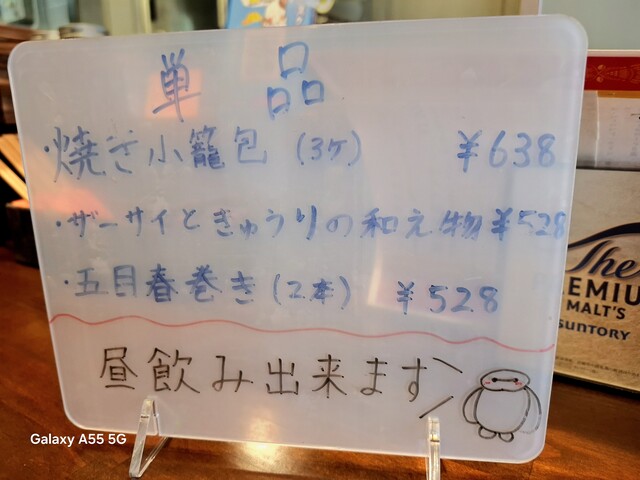 単品
・焼き小籠包(3ケ) ¥638
・ザーサイときゅうりの和え物 ¥528
・五目春巻き(2本) ¥528
昼飲み出来ます
The
MALT'S
SUNTORY
Galaxy A55 5G